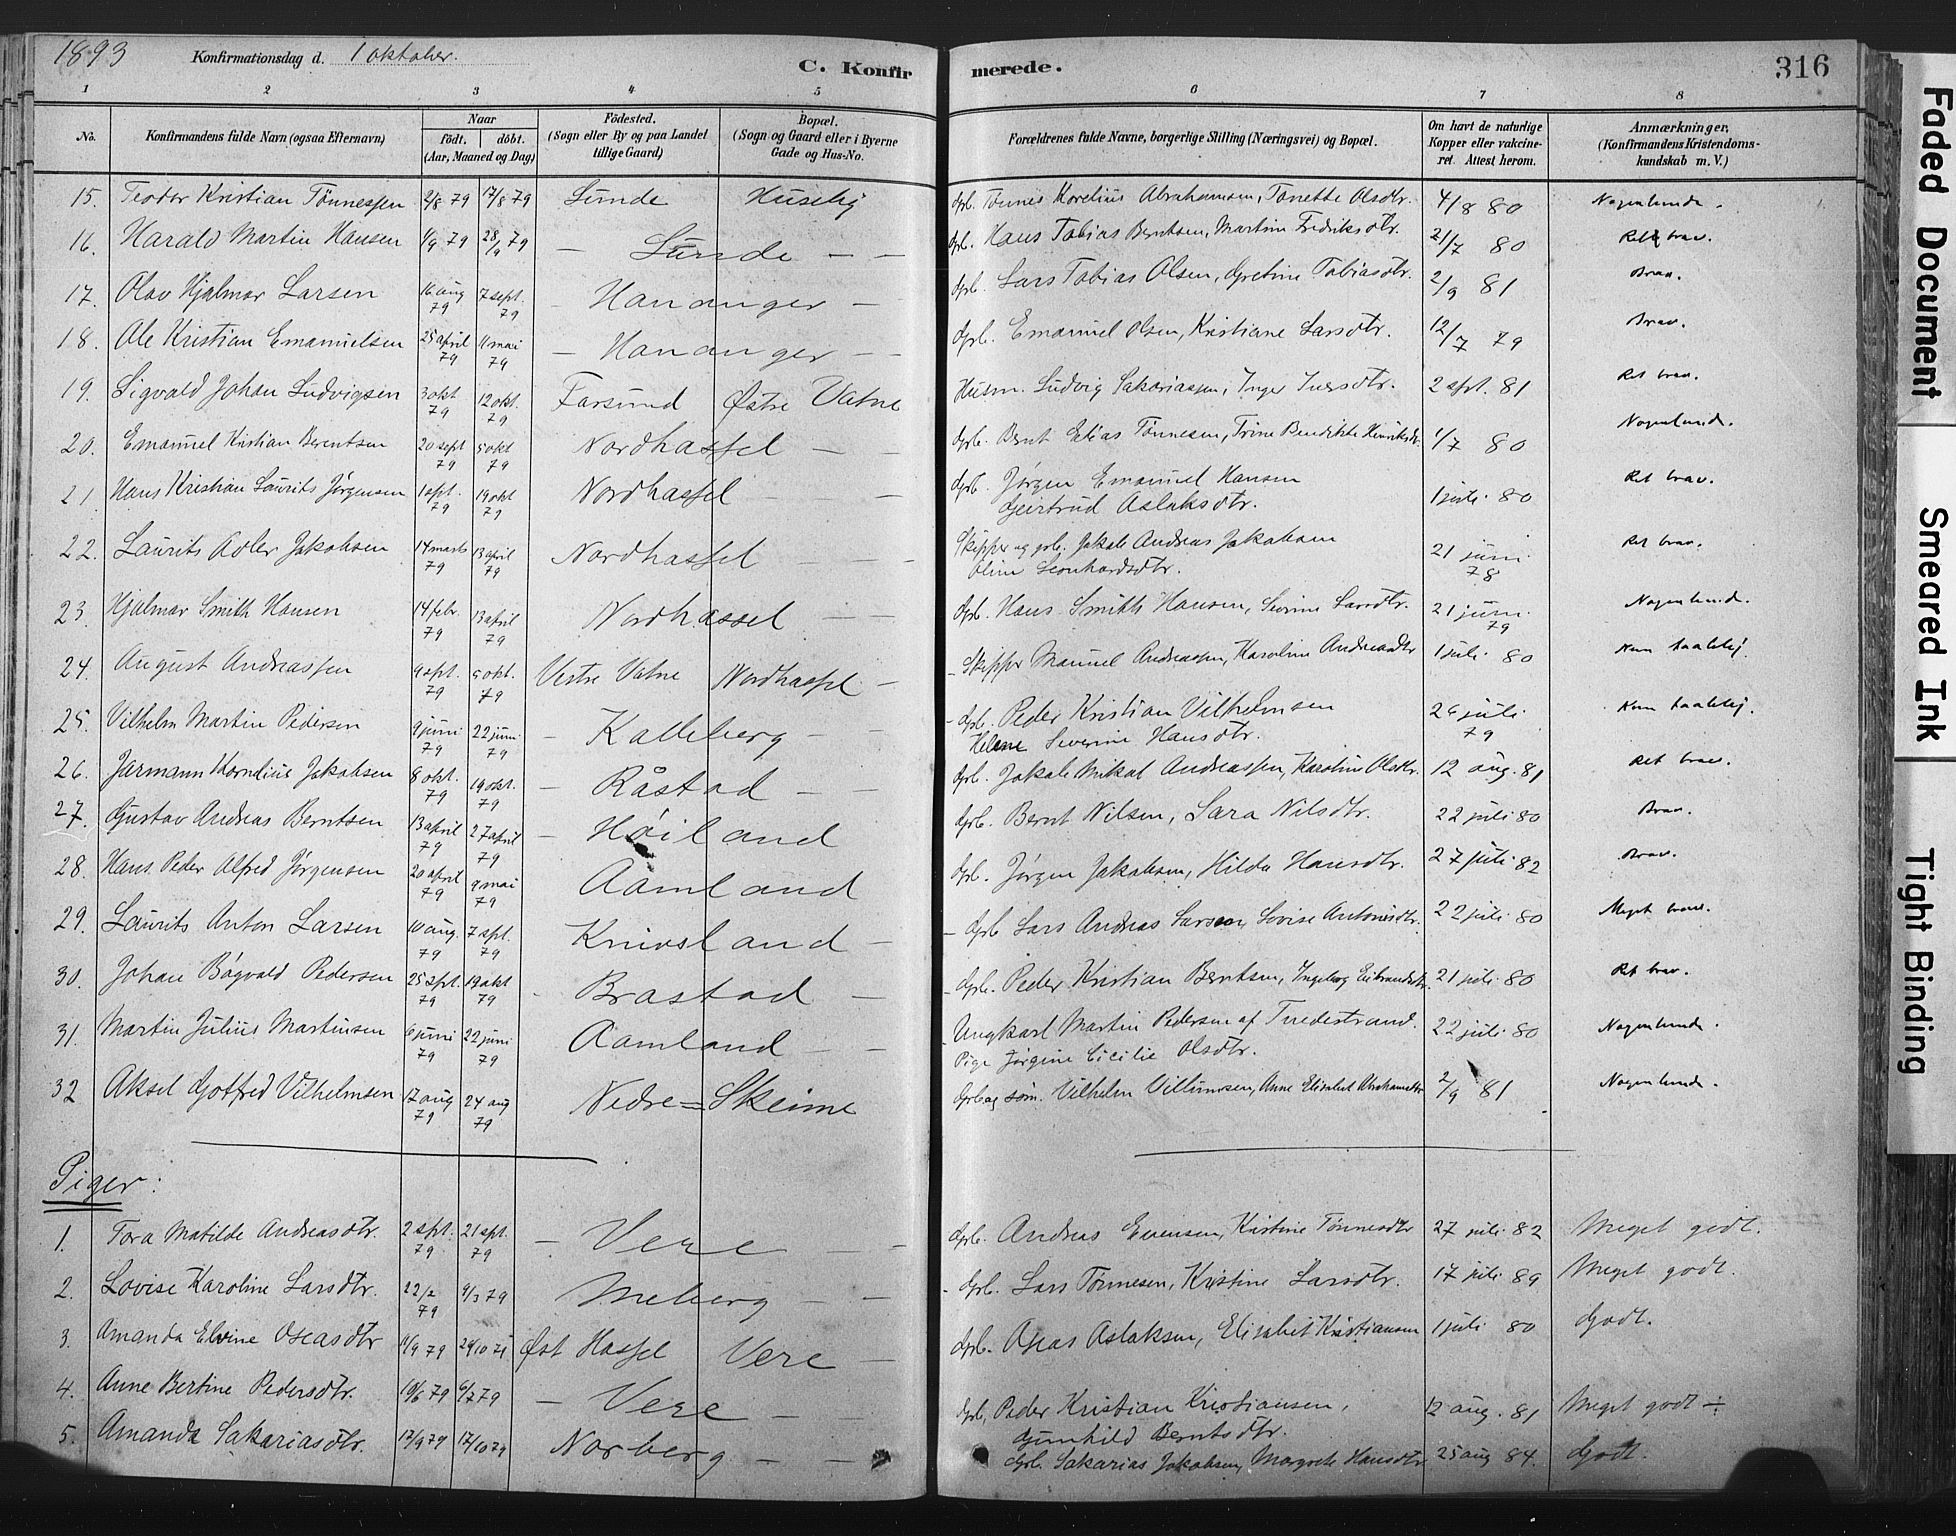 1893 Konfirmationsdag d. 1 oktober. C. Konfir merede. 316
1 2 3 4 5 6 7 8
No. Konfirmandens fulde Navn (ogsaa Efternavn) Naar født. døbt. (Aar, Maaned og Dag) Fødested. (Sogn eller By og paa Landet tillige Gaard) Bopæl. (Sogn og Gaard eller i Byerne Gade og Hus-No. Forældrenes fulde Navne, borgerlige Stilling (Næringsvei) og Bopæl. Om havt de naturlige Kopper eller vakcineret. Attest herom. Anmærkninger, (Konfirmandens Kristendomskundskab m. V.)
15. Teodor Kristian Tønnessen 2/8 79 17/8 79 Sunde Huseby Gbr. Tønnes Kornelius Abrahamsen, Tonette Olsdtr. 4/8 80 Nogenlunde.
16. Harald Martin Hansen 1/9 79 28/9 79 — Sunde — — Gbr. Hans Tobias Berntsen, Martine Fredriksdtr. 21/7 80 Ret brav.
17. Olav Hjalmar Larsen 16 aug 79 7 sept. 79 — Hananger — Gbr. Lars Tobias Olsen, Gretine Tobiasdtr. 2/9 81 Brav.
18. Ole Kristian Emanuelsen 25 april 79 11 mai 79 — Hananger — — Gbr. Emanuel Olsen, Kristiane Larsdtr. 12/7 79 Brav.
19. Sigvald Johan Ludvigsen 3 okt 79 12 okt. 79 Farsund Østre Vatne Husm. Ludvig Sakariassen, Inger Iversdtr. 2 spt. 81 Ret brav.
20. Emanuel Kristian Berentsen 20 sept 79 5 okt 79 Nordhassel — — Gbr. Bernt Elias Tønnesen, Trine Bendikte Henriksdtr. 1/7 80 Nogenlund.
21. Hans Kristian Laurits Jørgensen 1 spt. 79 19 okt 79 Nordhassel — — Gbr. Jørgen Emanuel Hansen
Geirtrud Aslaksdtr. 1 juli 80 Ret brav.
22. Laurits Adler Jakobsen 14 marts 79 13 april 79 Nordhassel — — Skipper og gbr. Jakob Andreas Jakobsen
Oline Leonhardsdtr. 21 juni 78 Ret brav.
23. Hjalmar Smith Hansen 14 febr. 79 13 april 79 Nordhassel — — Gbr. Hans Smith Hansen, Sevrine Larsdtr. 21 juni 79 Nogenlund.
24. August Andreassen 9 spt. 79 5 okt. 79 Vestre Vatne Nordhassel — Skipper Manuel Andreassen, Karoline Andreasdtr 1 juli 80 Kun taalelig.
25. Vilhelm Martin Pedersen 9 juni 79 22 juni 79 — Kalleberg — — Gbr. Peder Kristian Vilhelmsen
Helene Severine Hansdtr. 26 juli 79 Kun taalelig.
26. Jarmann Kornelius Jakobsen 8 okt. 79 19 okt. 79 — Råstad — — Gbr. Jakob Mikal Andreassen, Karoline Olsdtr. 12 aug. 81 Ret brav.
27. Gustav Andreas Berntsen 13 april 79 27 april 79 — Høiland Gbr. Bernt Nilsen, Sara Nilsdtr. 22 juli 80 Brav.
28. Hans Peder Alfred Jørgensen 20 april 79 9 mai 79 Aamland Gbr. Jørgen Jakobsen, Hilda Hansdtr. 27 juli 82 Brav.
29. Laurits Anton Larsen 10 aug. 79 7 spt. 79 Knivsland — Gbr Lars Andreas Larsen, Lovise Antonisdtr. 22 juli 80 Meget brav.
30. Johan Bågvald Pedersen 25 spt. 79 19 okt 79 Brastad — Gbr. Peder Kristian Berntsen, Ingeborg Eibrandsdtr. 21 juli 80 Ret brav.
31. Martin Julius Martinsen 6 juni 79 22 juni 79 Aamland — — Ungkarl Martin Pedersen af Tvedestrand.
Pige Jørgine Cicilie Olsdtr. 22 juli 80 Nogenlunde.
32 Aksel Gotfred Vilhelmsen 17 aug 79 24 aug 79 Nedre=Skeime Gbr og søm. Vilhelm Villumsen, Anne Elisabet Abrahamsdtr 2/9 81 Nogenlunde.
Piger:
1. Tora Matilde Andreasdtr. 2 spt. 79 21 spt. 79 — Vere — — Gbr. Andreas Evensen, Kristine Tønnesdtr 27 juli 82 Meget godt.
2. Lovise Karoline Larsdtr. 22/2 79 9/3 79 Meberg — — Gbr. Lars Tønnesen, Kristine Larsdtr. 17 juli 89 Meget godt
3. Amanda Elvine Oseasdtr 11/9 79 Øst Hassel Vere — Gbr. Oseas Aslaksen, Elisabet Kristiansen 1 juli 80 Godt.
4. Anne Bertine Pedersdtr. 10/6 79 6/7 79 — Vere — — Gbr. Peder Kristian Kristiansen,
Gunhild Berntsdtr. 12 aug. 81 Meget godt ÷
5. Amanda Sakariasdtr. 17/9 79 12/10 79 Norberg — — Gbr. Sakarias Jakobsen, Margrete Hansdtr 25 aug 84. Godt.
Faded Document
Smeared Ink
Tight Binding